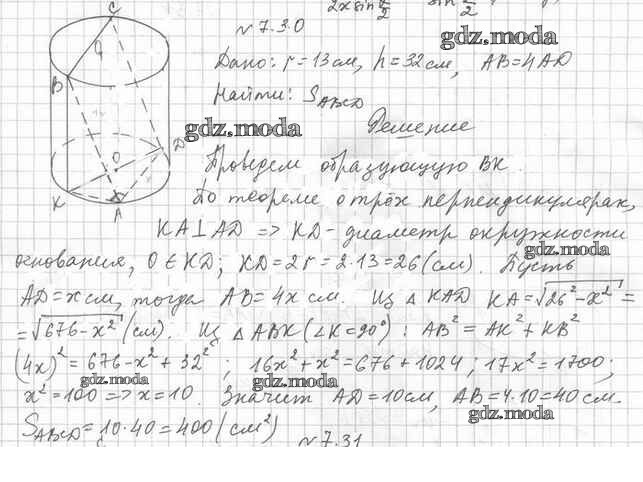 2x sin α/2 sin α/2
N 7.30
gdz.moda
Дано: r = 13 см, h = 32 см, AB = 4AD
Найти: S_ABCD
gdz.moda
Решение
Проведем образующую BK.
По теореме о трёх перпендикулярах,
KA ⊥ AD => KD - диаметр окружности
gdz.moda
основания, O ∈ KD; KD = 2r = 2·13 = 26 (см). Пусть
AD = x см, тогда AB = 4x см. Из △ KAD KA = √26² - x² =
= √676 - x² (см). Из △ ABK (∠K = 90°): AB² = AK² + KB²
gdz.moda
(4x)² = 676 - x² + 32²; 16x² + x² = 676 + 1024; 17x² = 1700;
gdz.moda gdz.moda
x² = 100 => x = 10. Значит AD = 10 см, AB = 4·10 = 40 см.
gdz.moda
S_ABCD = 10·40 = 400 (см²)
N 7.31
C
B
O
D
K
A